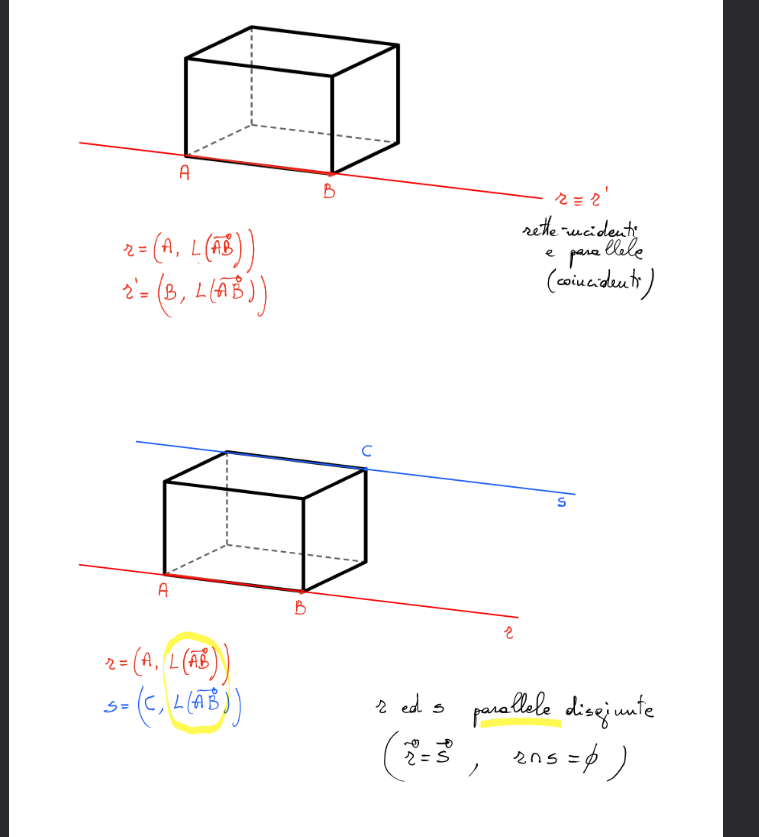 A
B
r ≡ r'
rette incidenti
e parallele
(coincidenti)
r = (A, L(AB⃗))
r' = (B, L(AB⃗))
C
s
A
B
r
r = (A, L(AB⃗))
s = (C, L(AB⃗))
r ed s parallele disgiunte
(r⃗ = s⃗ , r∩s = ϕ)